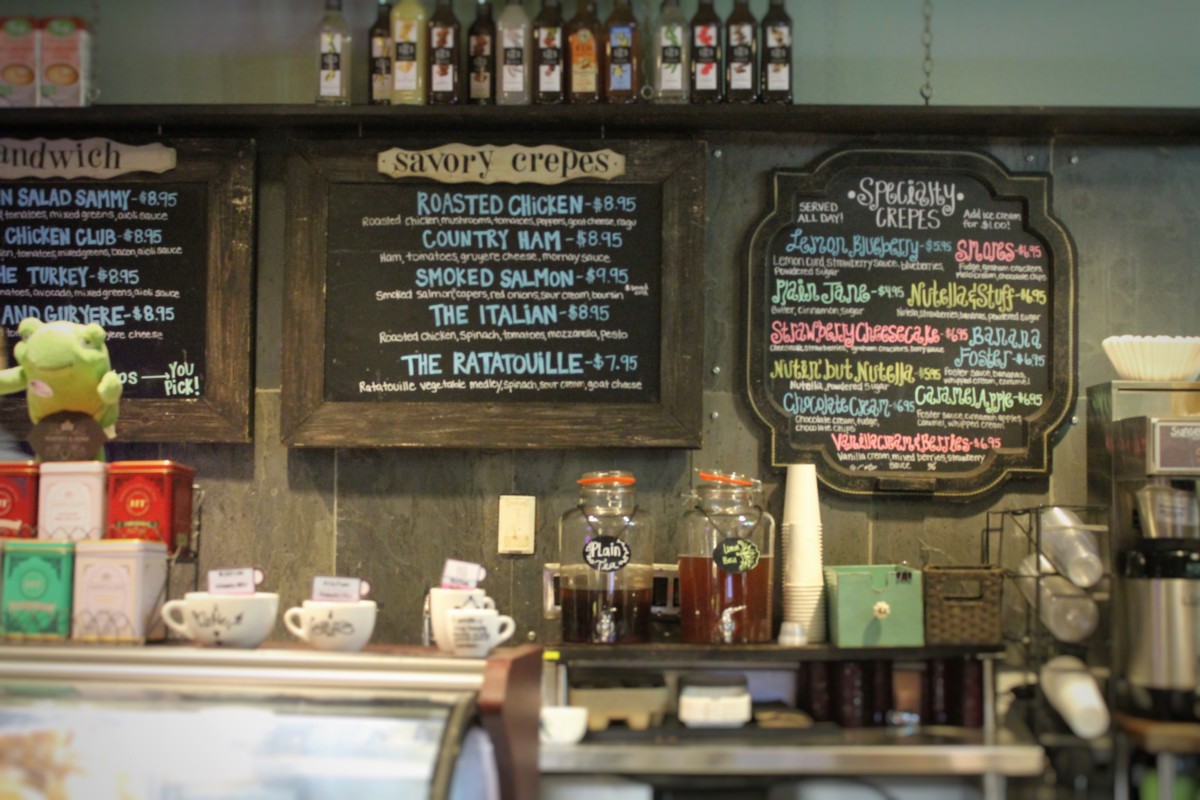 andwich
N SALAD SAMMY-$8.95
tomatoes, mixed greens, aioli sauce
CHICKEN CLUB-$8.95
tomatoes, mixed greens, bacon, aioli sauce
HE TURKEY-$8.95
tomatoes, avocado, mixed greens, aioli sauce
AND GURYERE-$8.95
YOU
PICK!
savory crepes
ROASTED CHICKEN-$8.95
Roasted chicken, mushrooms, tomatoes, peppers, goat cheese, ragu
COUNTRY HAM-$8.95
Ham, tomatoes, gruyere cheese, mornay sauce
SMOKED SALMON-$9.95
Smoked salmon, capers, red onions, sour cream, boursin
THE ITALIAN-$8.95
Roasted chicken, spinach, tomatoes, mozzarella, pesto
THE RATATOUILLE-$7.95
Ratatouille vegetable medley, spinach, sour cream, goat cheese
SPECIALTY
CREPES
SERVED
ALL DAY!
Add ice cream
for $1.00!
Lemon Blueberry-$5.95
Lemon curd, strawberry sauce, blueberries,
Powdered sugar
Smores-$6.95
Fudge, graham crackers,
Plain Jane-$4.95
Butter, cinnamon, sugar
Nutella & Stuff-$6.95
Nutella, strawberries, bananas, powdered sugar
Strawberry Cheesecake-$6.95
Banana
Foster-$6.95
Foster sauce, bananas,
whipped cream, caramel
Nutin' but Nutella-$5.95
Nutella, powdered sugar
Chocolate Cream-$6.95
Chocolate cream, fudge,
chocolate chips
Caramel Apple-$6.95
Foster sauce, cinnamon apples,
caramel, whipped cream
Vanilla cream & Berries-$6.95
Vanilla cream, mixed berries, strawberry
sauce
Plain
Tea
HT
HT